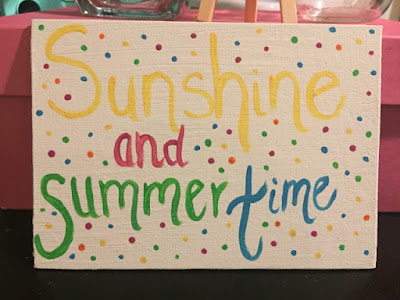 Sunshine
and
Summer time